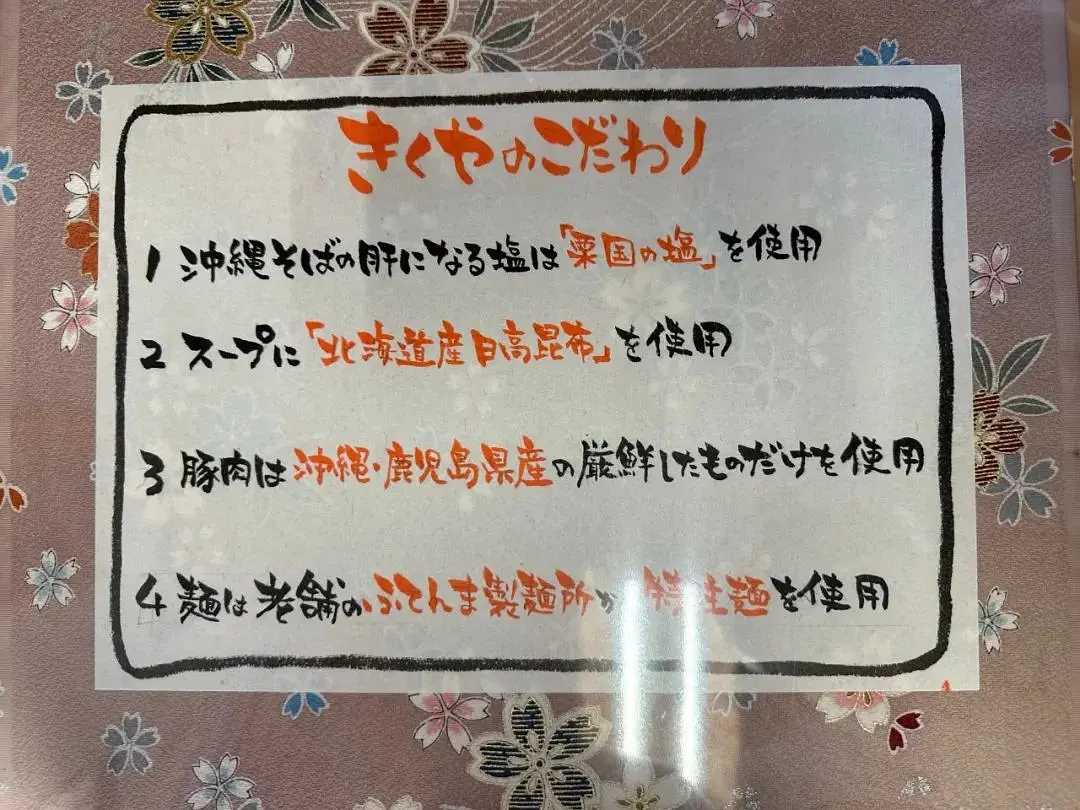 きくやのこだわり
1 沖縄そばの肝になる塩は「粟国の塩」を使用
2 スープに「北海道産日高昆布」を使用
3 豚肉は沖縄・鹿児島県産の厳鮮したものだけを使用
4 麺は老舗のふてんま製麺所が特注麺を使用